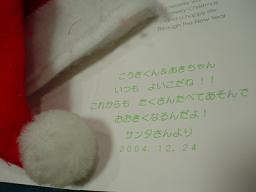 merry Christmas
and a happy life
through the New Year
こうきくん&あきちゃん
いつも よいこだね!!
これからも たくさんたべてあそんで
おおきくなるんだよ!
サンタさんより
2004.12.24